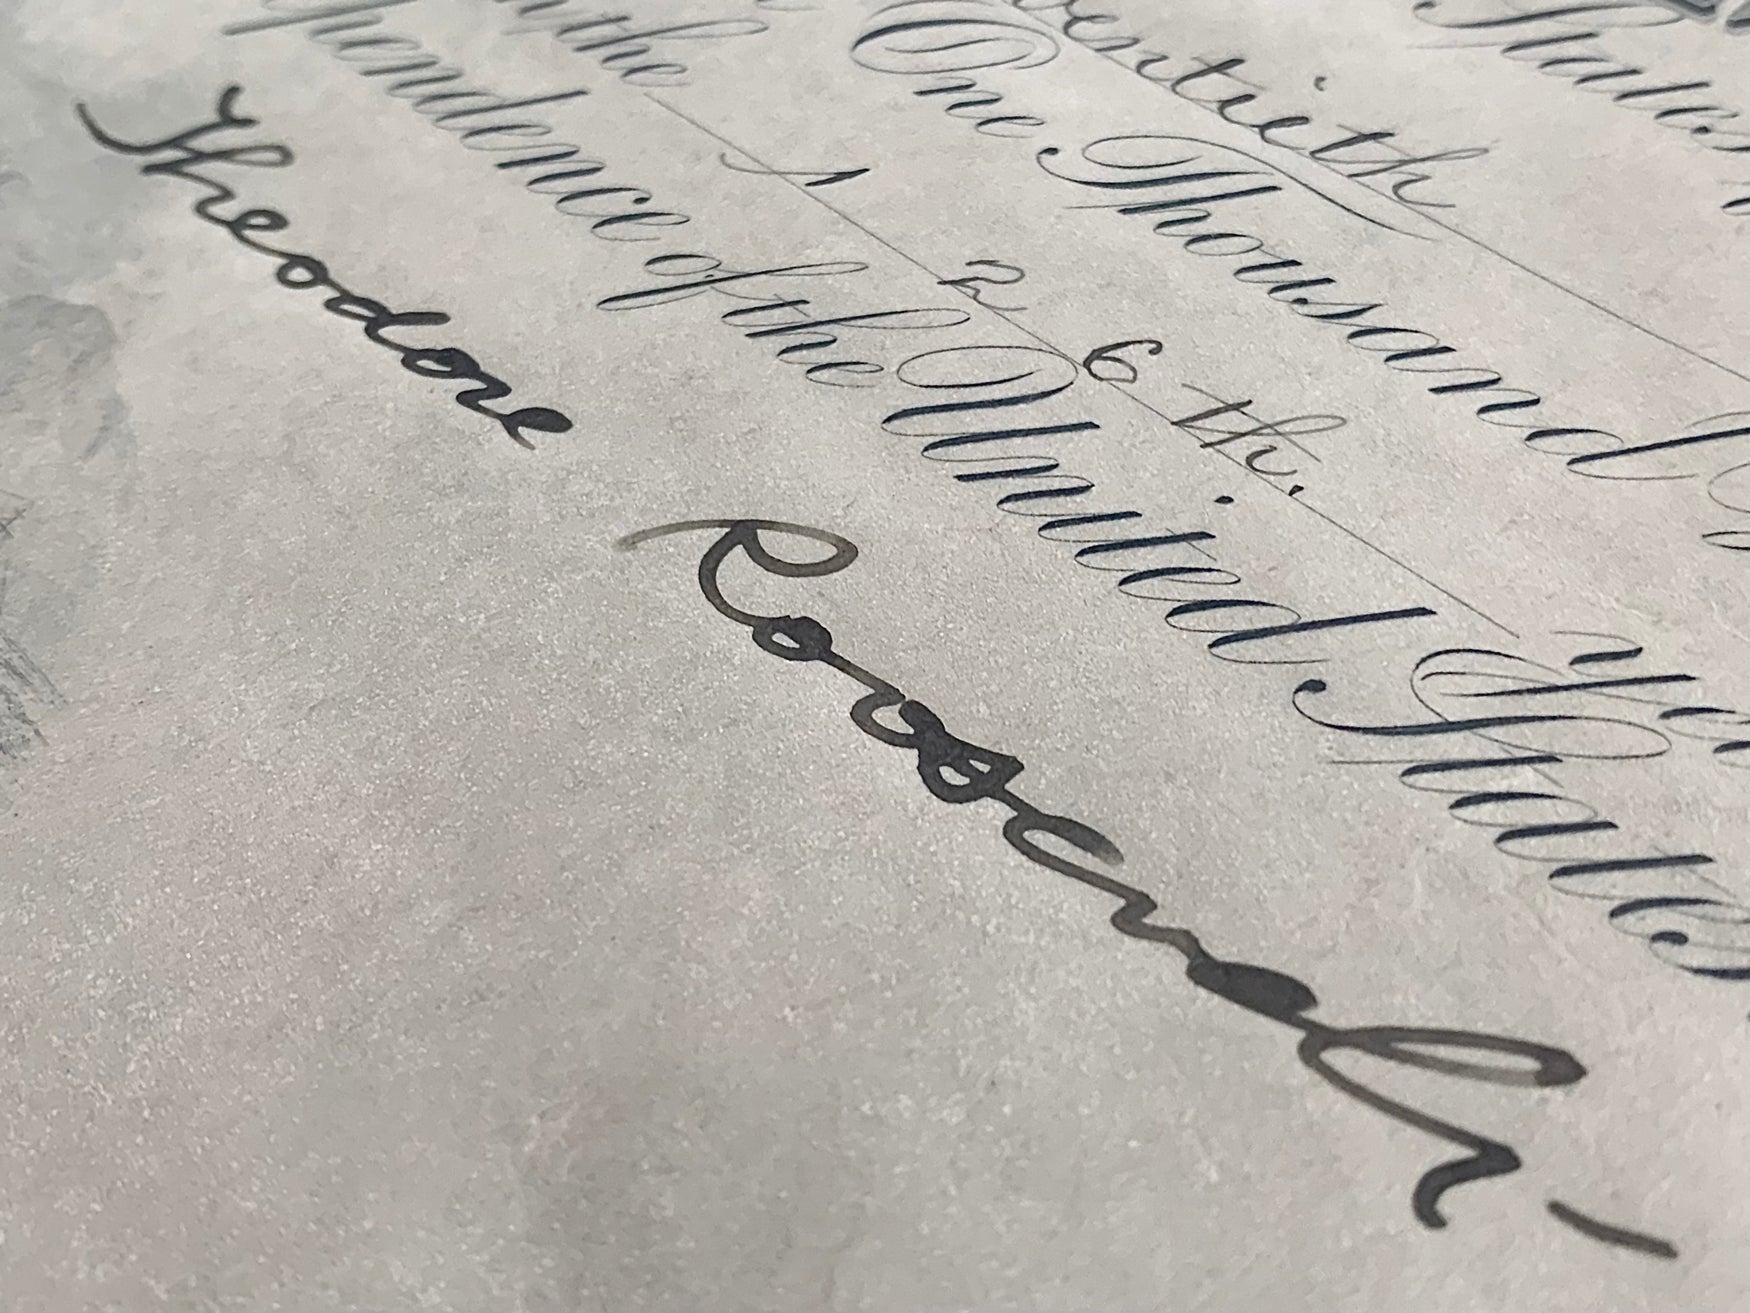 States
ventieth
One Thousand
the 1 2 6 th.
pendence of the United States
Theodore Roosevelt